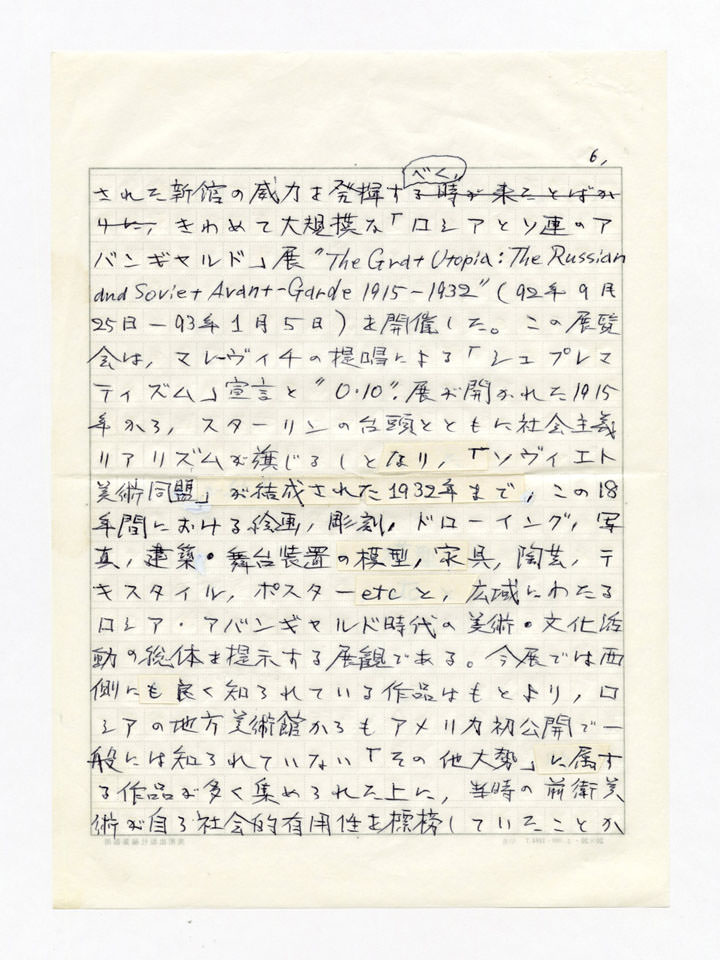 6,
べく,
された新館の威力を発揮する時が来たとばか
りに, きわめて大規模な「ロシアとソ連のア
バンギャルド」展 "The Grat Utopia: The Russian
and Soviet Avant-Garde 1915-1932" (92年9月
25日-93年1月5日) を開催した。この展覧
会は, マレーヴィチの提唱による「シュプレマ
ティズム」宣言と "0・10". 展が開かれた1915
年から, スターリンの台頭とともに社会主義
リアリズムが旗じるしとなり, 「ソヴィエト
美術同盟」が結成された1932年まで, この18
年間における絵画, 彫刻, ドローイング, 写
真, 建築・舞台装置の模型, 家具, 陶芸, テ
キスタイル, ポスターetcと, 広域にわたる
ロシア・アバンギャルド時代の美術・文化活
動の総体を提示する展観である。今展では西
側にも良く知られている作品はもとより, ロ
シアの地方美術館からもアメリカ初公開で一
般には知られていない「その他大勢」に属す
る作品が多く集められた上に, 当時の前衛美
術が自ら社会的有用性を標榜していたことか